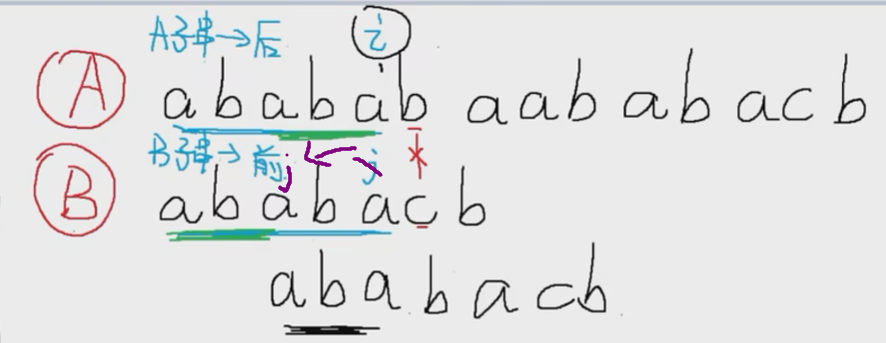 A子串→后 i
A a b a b a b a a b a b a c b
B子串→前 j j
B a b a b a c b
a b a b a c b